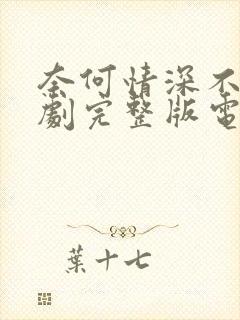 奈何情深不
劇完整版電
葉十七